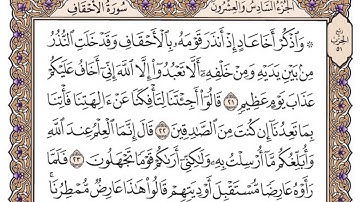 الجزء السادس والعشرون سورة الأحقاف
۞ وَاذْكُرْ أَخَا عَادٍ إِذْ أَنذَرَ قَوْمَهُ بِالْأَحْقَافِ وَقَدْ خَلَتِ النُّذُرُ
مِن بَيْنِ يَدَيْهِ وَمِنْ خَلْفِهِ أَلَّا تَعْبُدُوا إِلَّا اللَّهَ إِنِّي أَخَافُ عَلَيْكُمْ
عَذَابَ يَوْمٍ عَظِيمٍ ٢١ قَالُوا أَجِئْتَنَا لِتَأْفِكَنَا عَنْ آلِهَتِنَا فَأْتِنَا
بِمَا تَعِدُنَا إِن كُنتَ مِنَ الصَّادِقِينَ ٢٢ قَالَ إِنَّمَا الْعِلْمُ عِندَ اللَّهِ
وَأُبَلِّغُكُم مَّا أُرْسِلْتُ بِهِ وَلَٰكِنِّي أَرَاكُمْ قَوْمًا تَجْهَلُونَ ٢٣ فَلَمَّا
رَأَوْهُ عَارِضًا مُّسْتَقْبِلَ أَوْدِيَتِهِمْ قَالُوا هَٰذَا عَارِضٌ مُّمْطِرُنَا ۚ